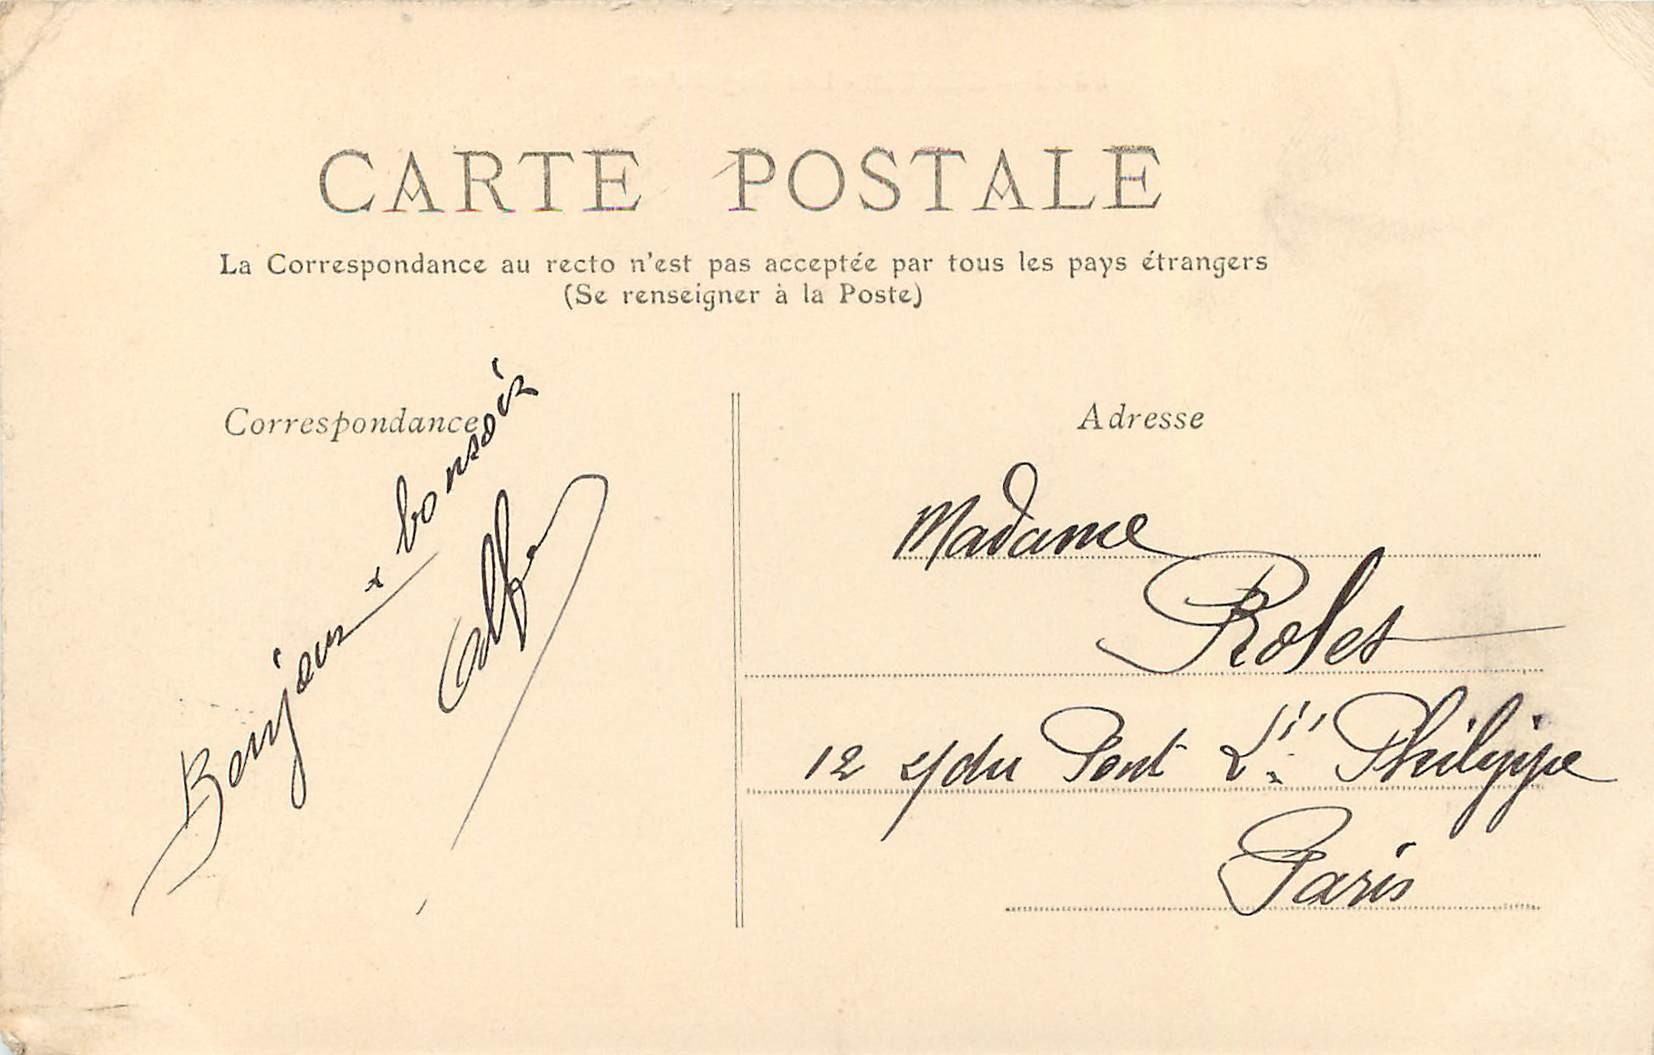 CARTE POSTALE
La Correspondance au recto n'est pas acceptée par tous les pays étrangers
(Se renseigner à la Poste)
Correspondance
Bonjour + bonsoir
Adresse
Madame
Roles
12 r/ du Pont Ls Philippe
Paris